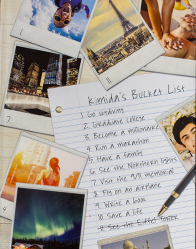 Kimida's Bucket List
1. Go skydiving
2. Graduate college
3. Become a millionaire
4. Run a marathon
5. Have a family
6. See the Northern Lights
7. Visit the 9/11 memorial
8. Fly on an airplane
9. Write a book
10. Save a life
8 See the Eiffel Tower
1
2
7
4